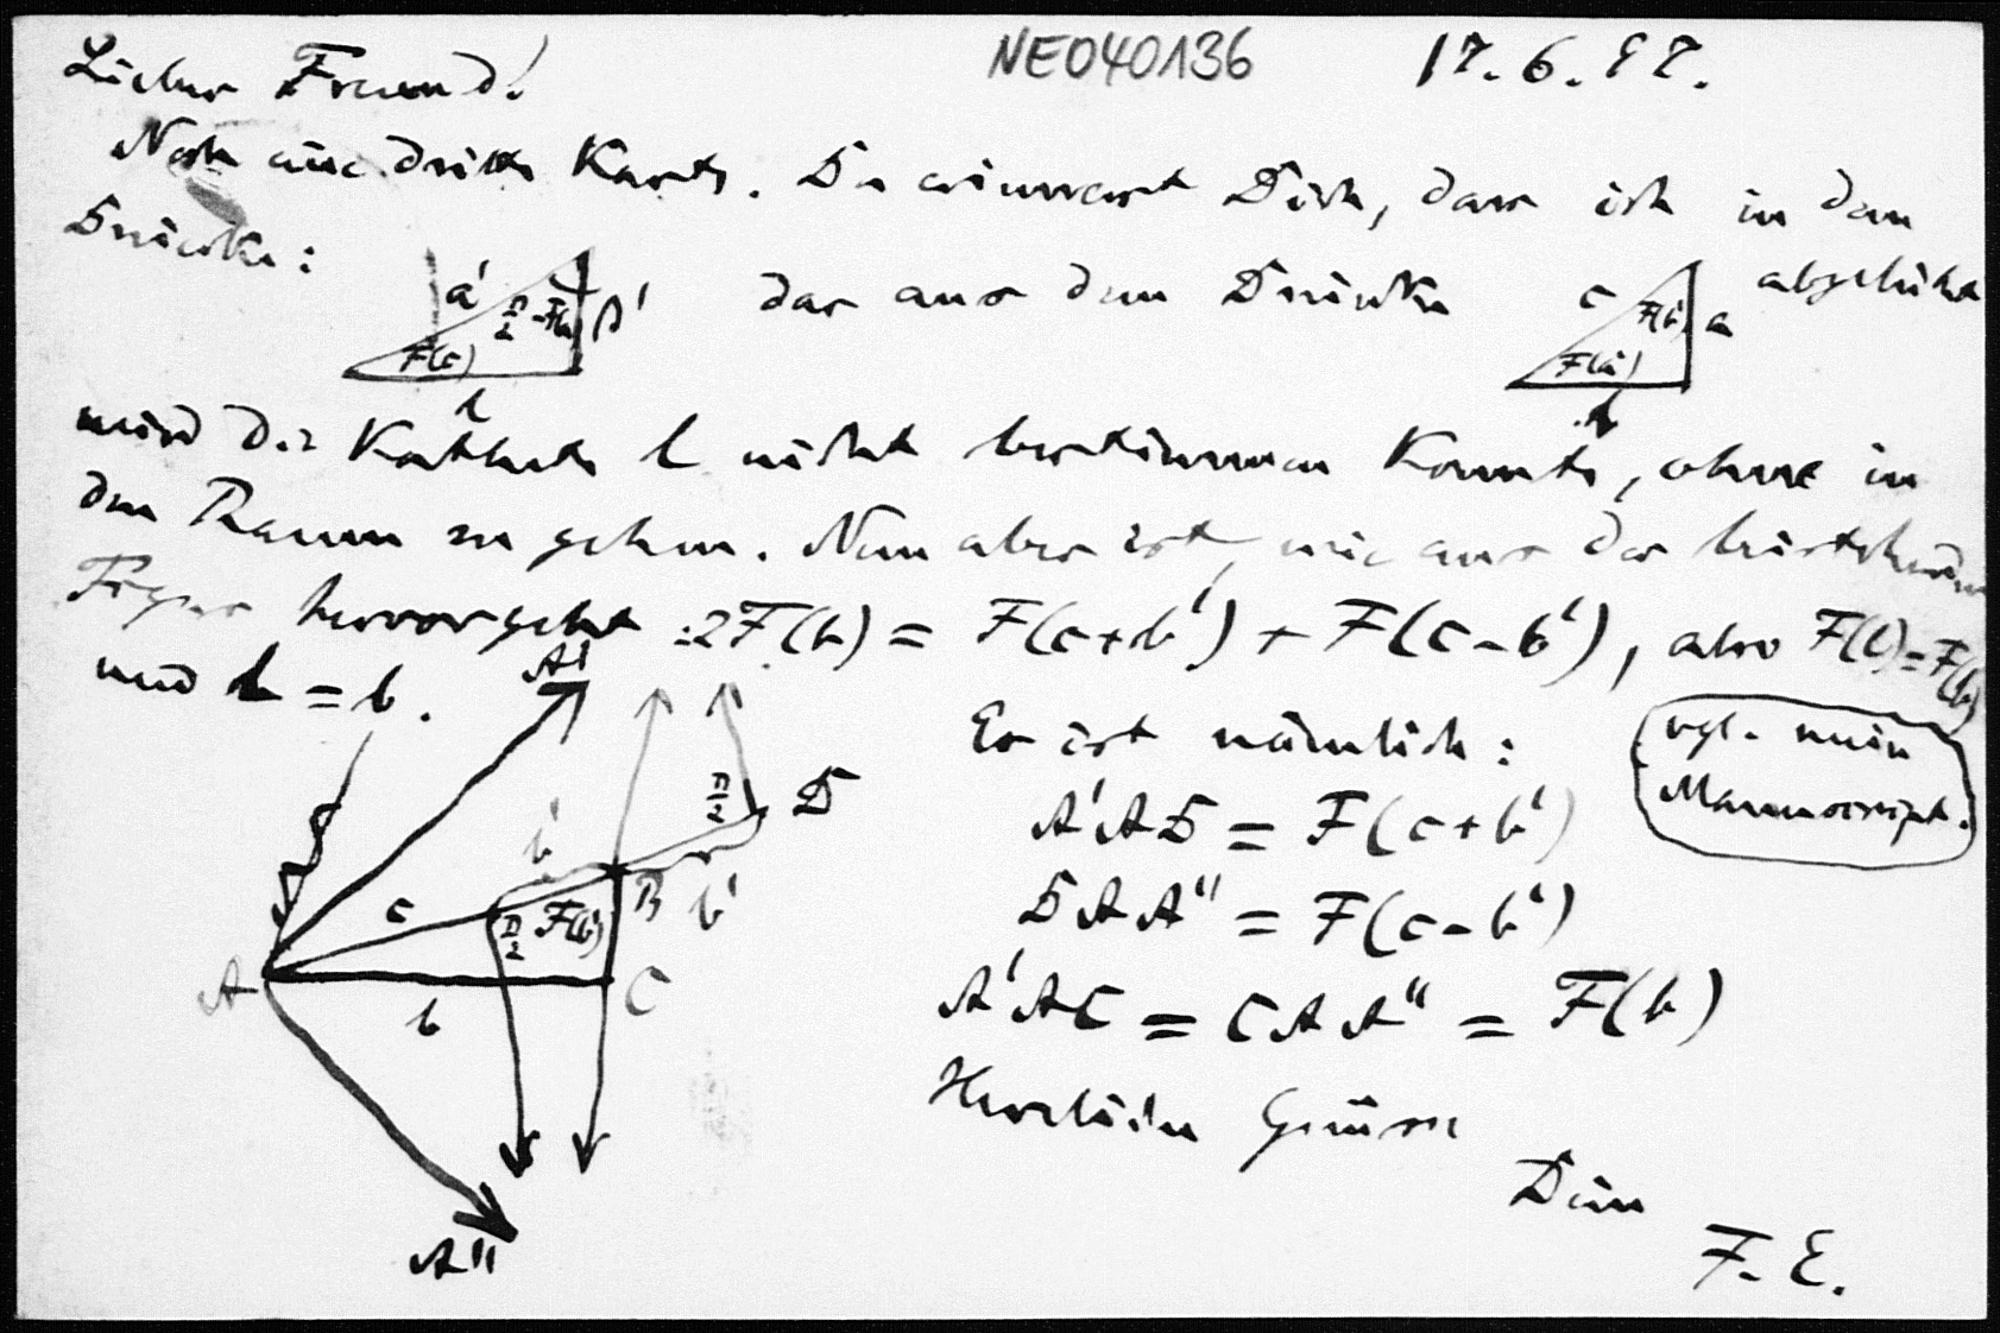 NEO40136 17.6.97.
Lieber Freund!
Noch eine dritte Karte. Du erinnerst Dich, dass ich in dem
Dreiecke: a' F(c) l das aus dem Dreiecke c F(b) a F(a) b abgeleitet
wird die Kathete l nicht bestimmen konnte, ohne in
den Raum zu gehen. Nun aber ist, wie aus der beistehenden
Figur hervorgeht: 2F(b) = F(c+b') + F(c-b'), also F(l)=F(b)
und l = b.
Es ist nämlich:
vgl. mein
Manuscript.
A'AD = F(c+b')
DAA" = F(c-b')
A'AC = CAA" = F(b)
A' D b' c B b' A b C A"
Herzlichen Grüsse
Dein
F. E.